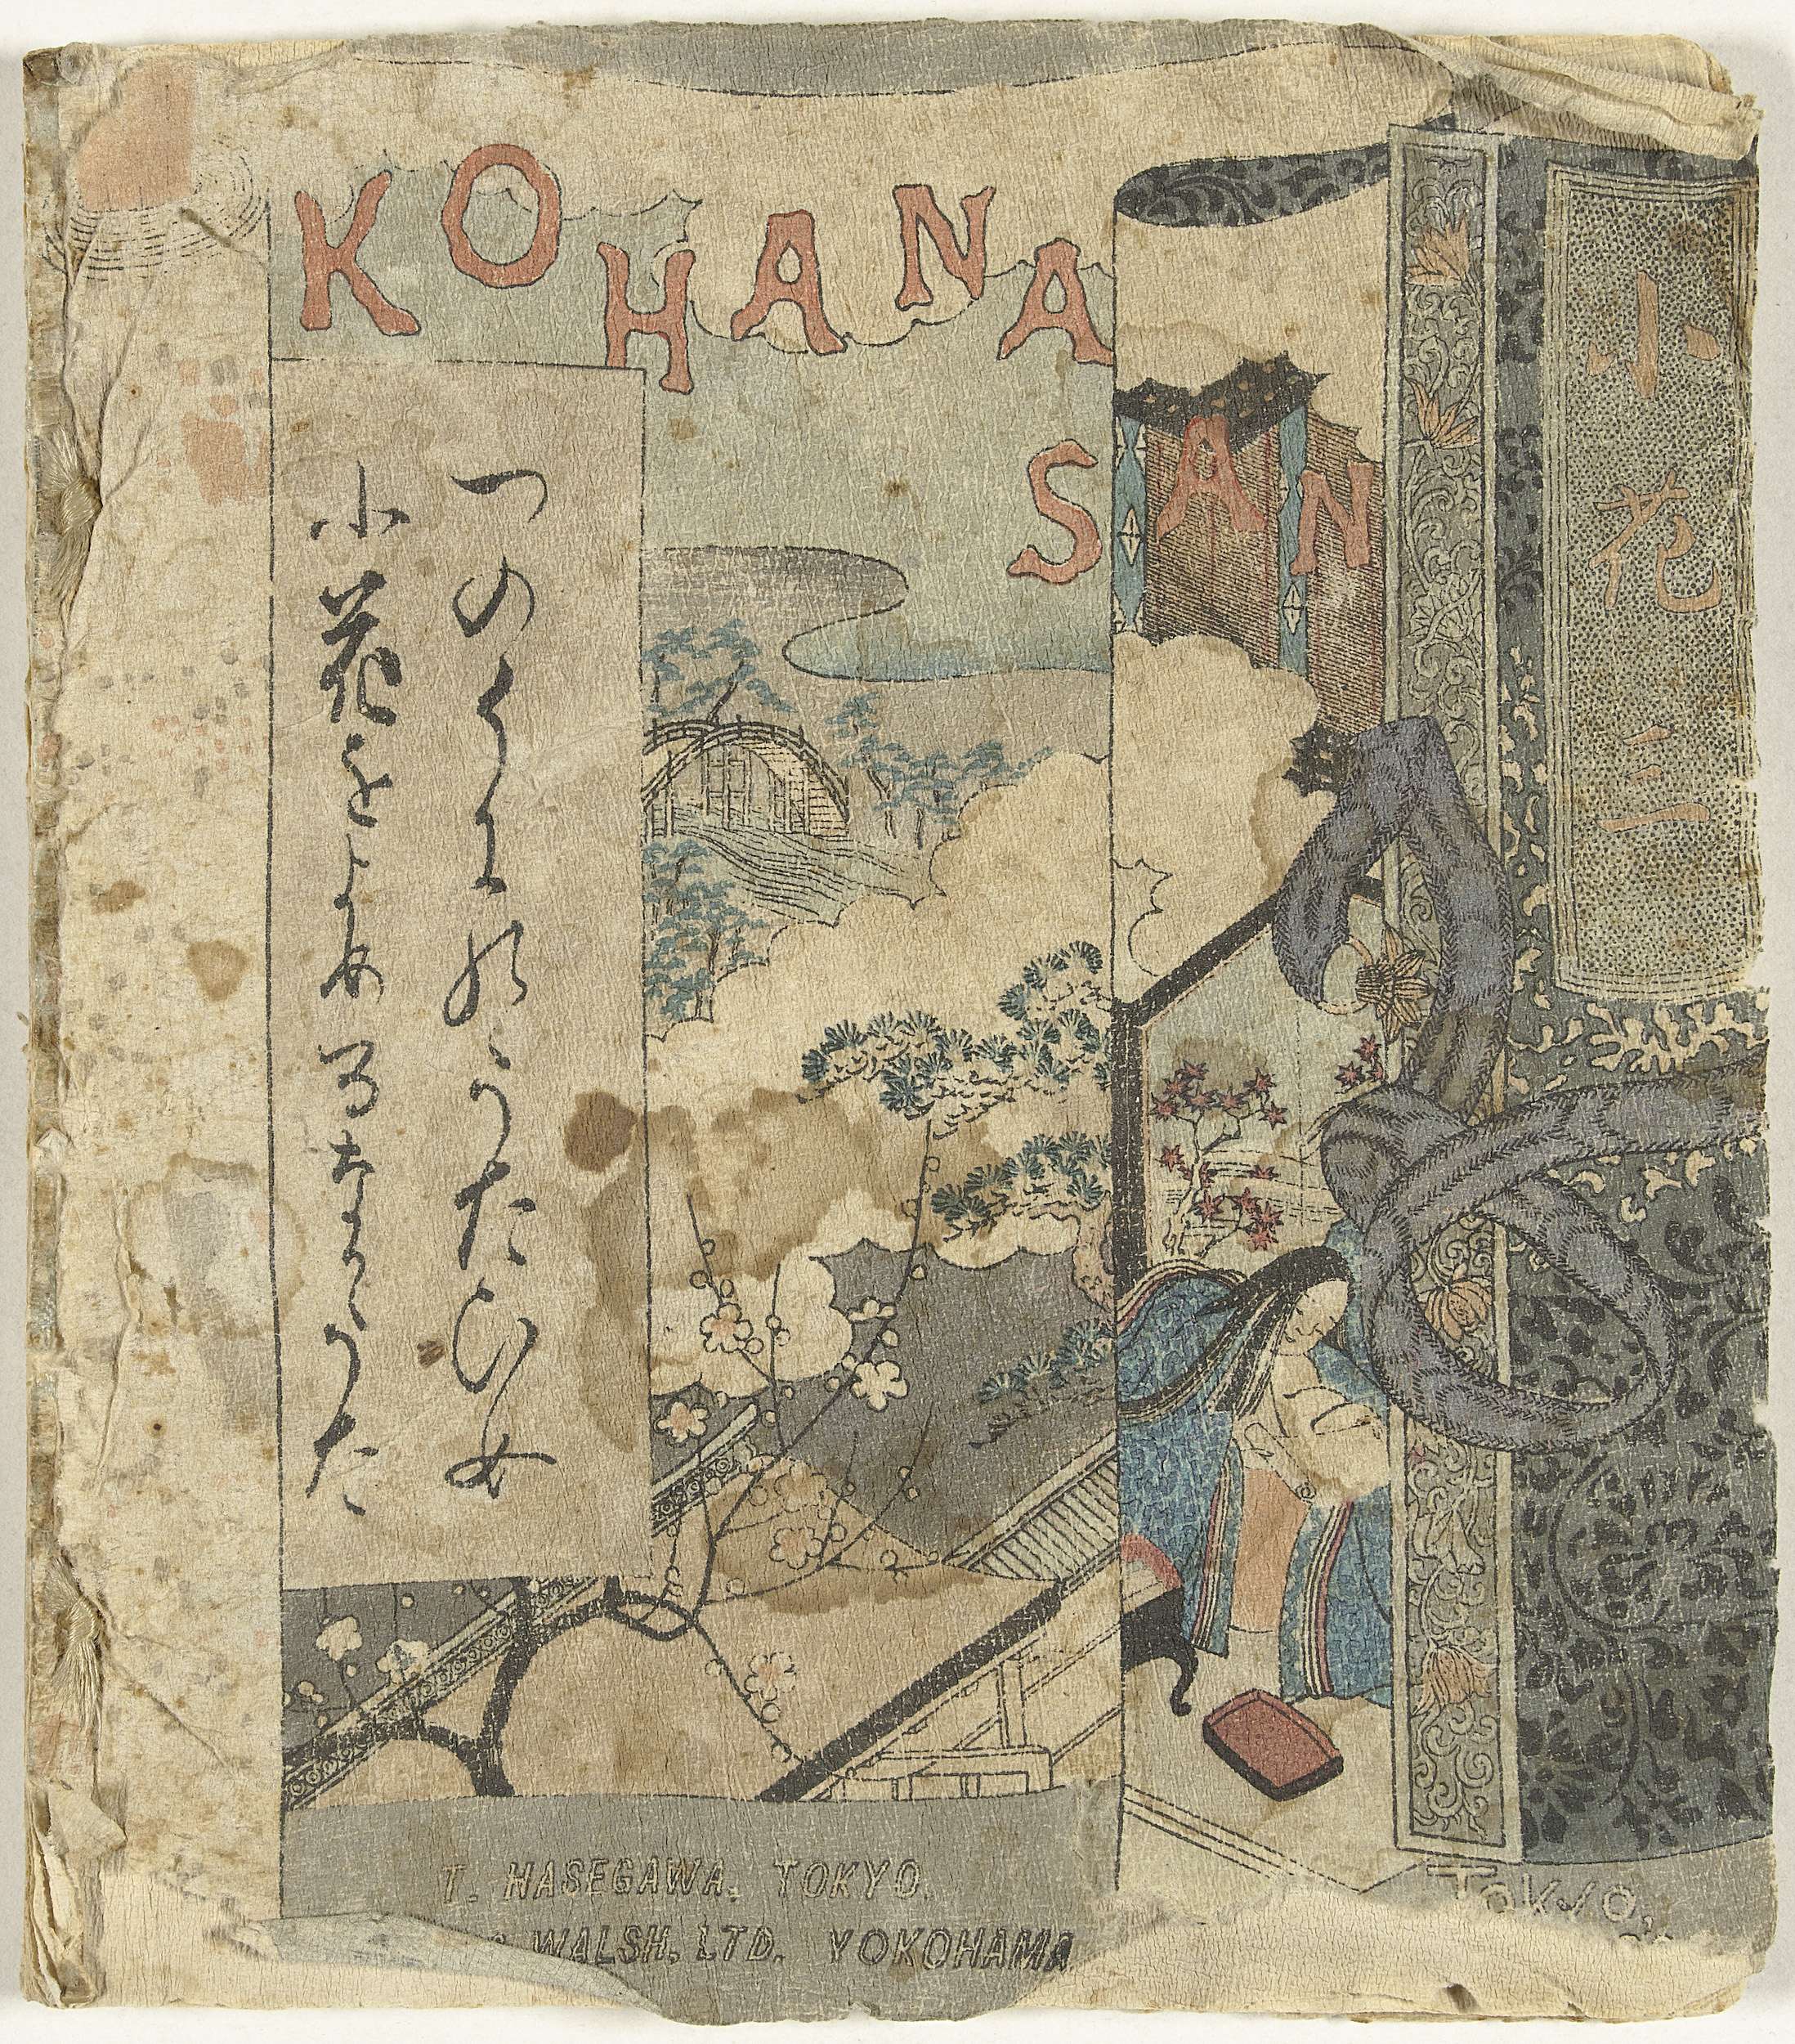 KOHANA
SAN
小花三
つのくにのうたひ女
小花をよめるなかうた
T. HASEGAWA. TOKYO.
WALSH, LTD. YOKOHAMA
TOKYO,